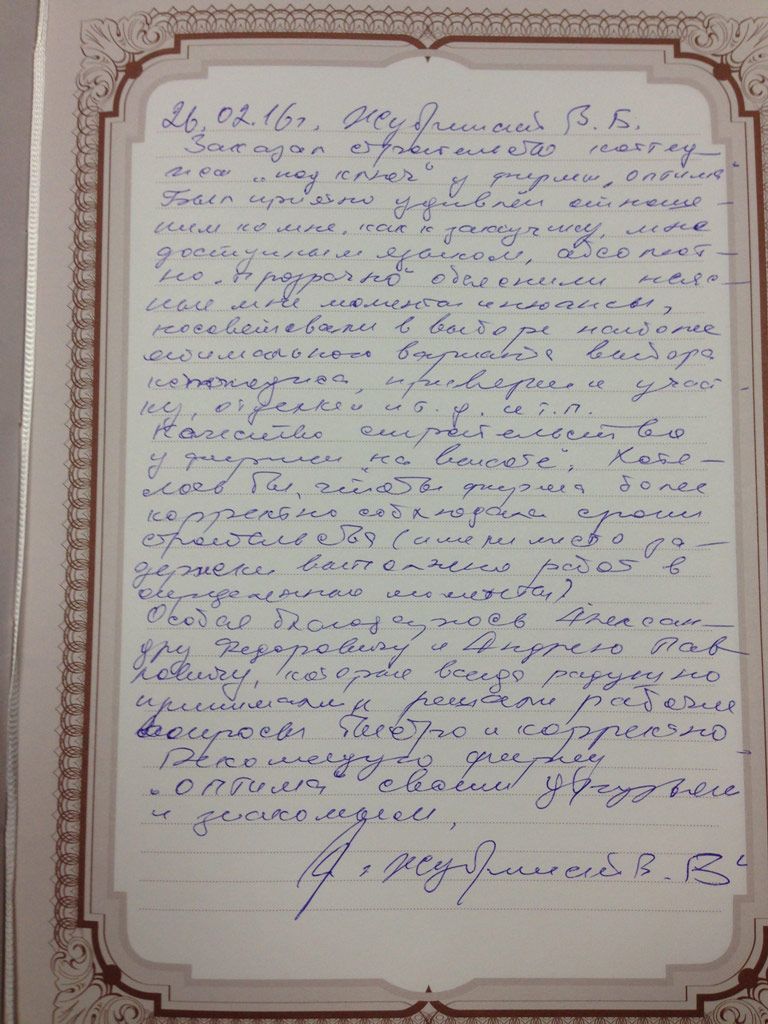 26.02.16г. Жубринский В.Б.
Заказал строительство коттед-
жа "под ключ" у фирмы "оптима"
Был приятно удивлен отноше-
нием ко мне, как к заказчику, мне
доступным языком, абсолют-
но "прозрачно" объяснили неяс-
ные мне моменты и нюансы,
посоветовали в выборе наиболее
оптимального варианта выбора
привязки к участ-
ку, отделки и т.д. и т.п.
Качество строительства
у фирмы "на высоте". Хоте-
лось бы, чтобы фирма более
корректно соблюдала сроки
строительства (имели место за-
держки выполнения работ в
определенные моменты)
Особая благодарность Алексан-
дру Федоровичу и Андрею Пав-
ловичу, которые всегда радушно
принимали и решали рабочие
вопросы быстро и корректно
Рекомендую фирму
"оптима" своим друзьям
и знакомым.
Жубринский В.В